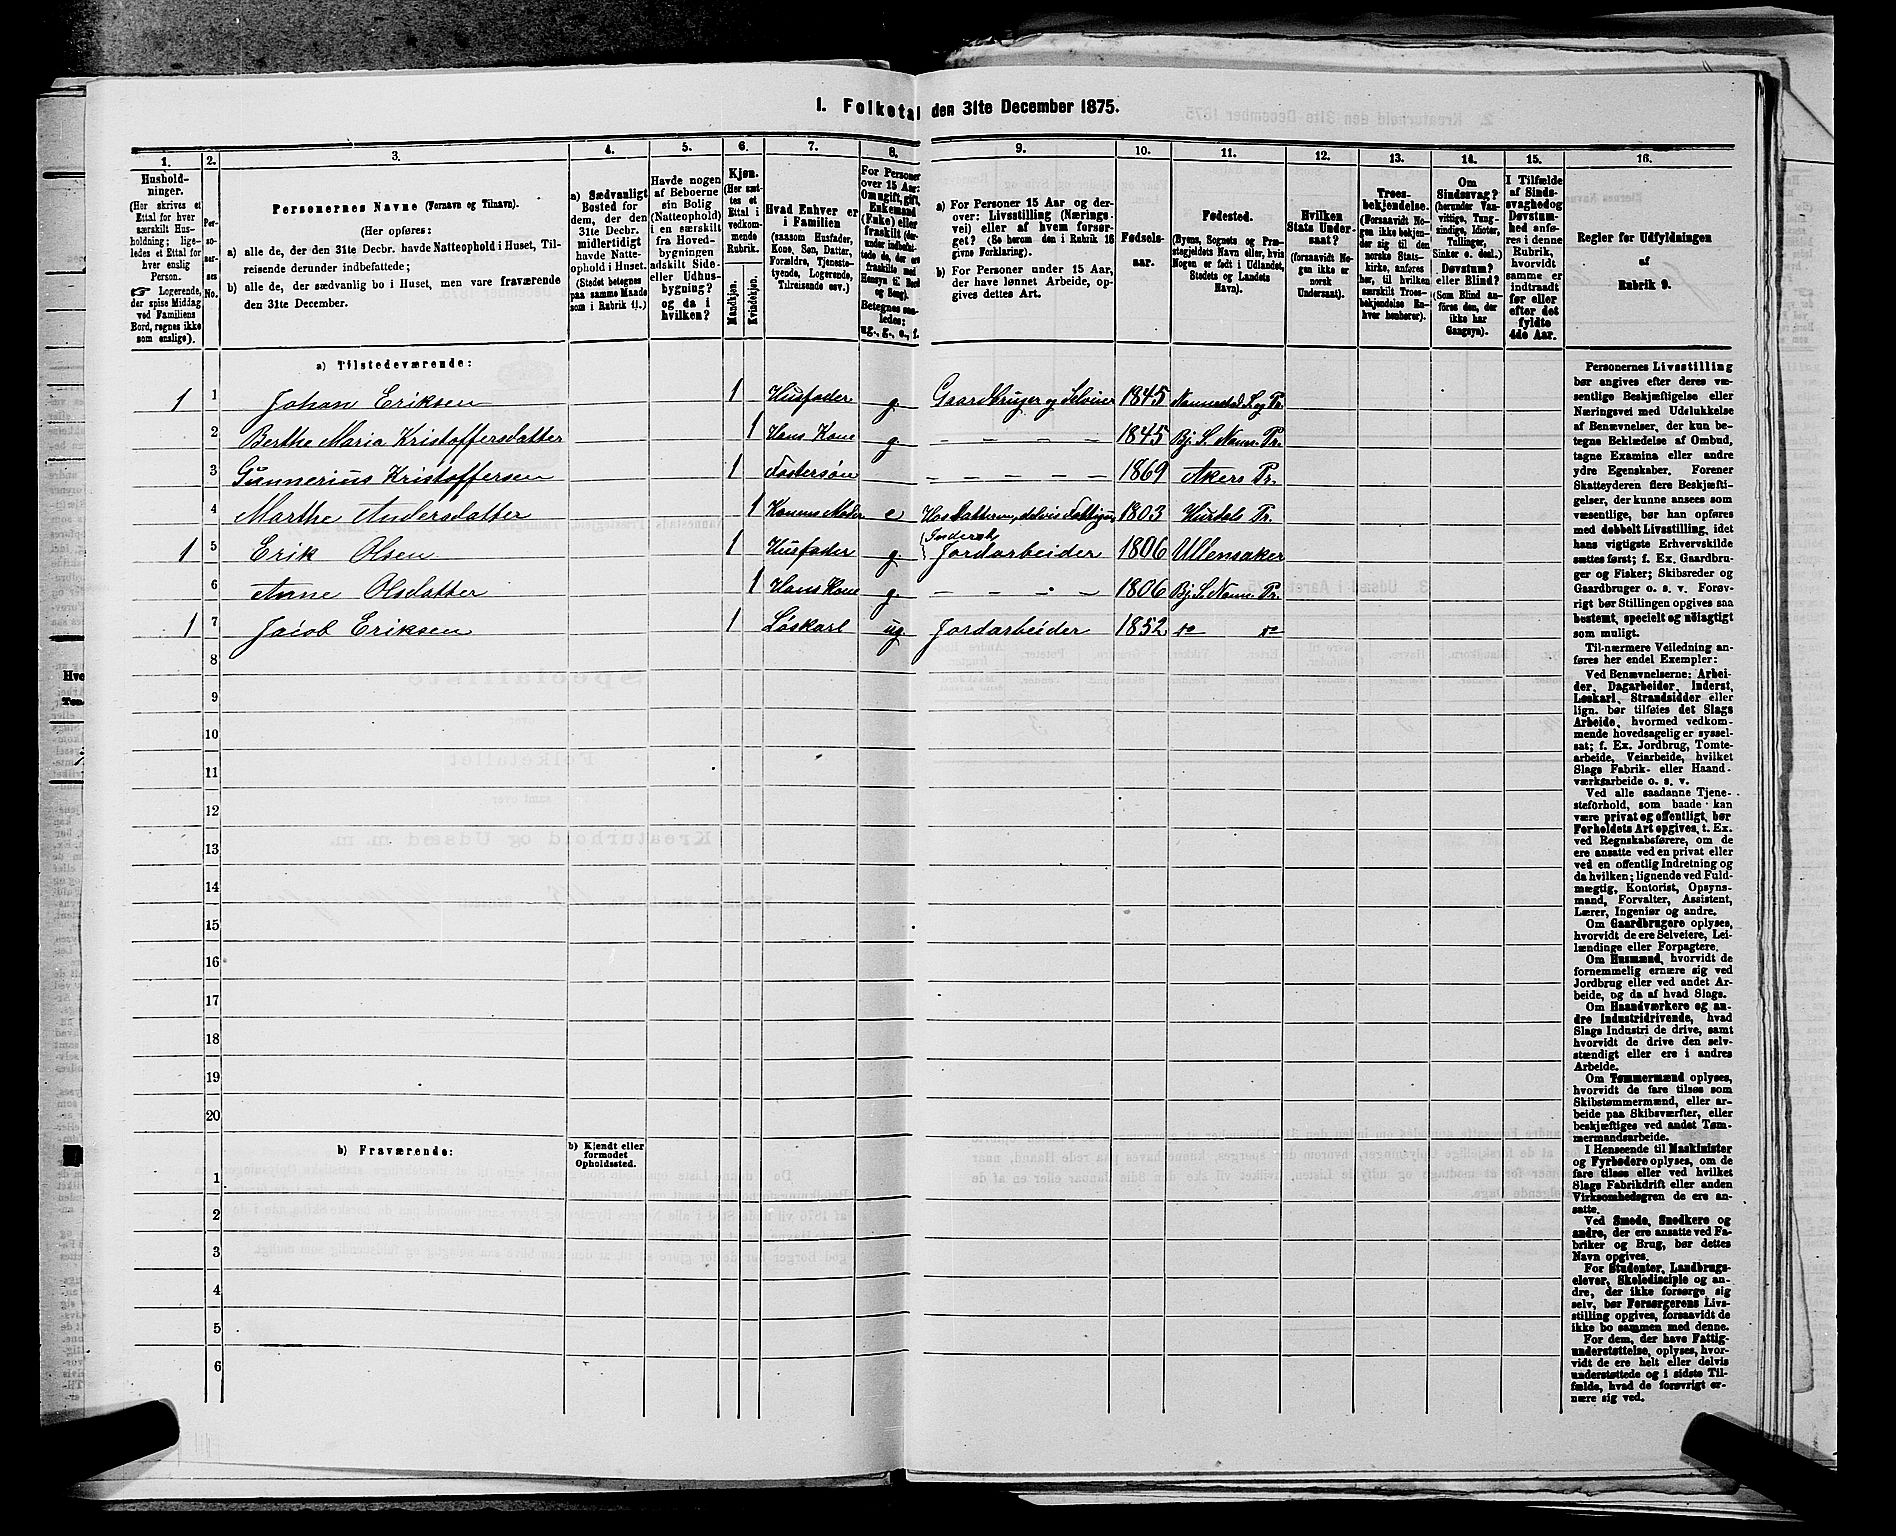 1. Folketal den 31te December 1875.
1. 2. 3. 4. 5. 6. 7. 8. 9. 10. 11. 12. 13. 14. 15. 16.
Hushold-
ninger.
(Her skrives et
Ettal for hver
særskilt Hus-
holdning; lige-
ledes et Ettal for
hver enslig
Person.
☞ Logerende,
der spise Middag
ved Familiens
Bord, regnes ikke
som enslige).
Per-
so-
ner-
nes
No.
Personernes Navne (Fornavn og Tilnavn).
(Her opføres:
a) alle de, der den 31te Decbr. havde Natteophold i Huset, Til-
reisende derunder indbefattede;
b) alle de, der sædvanlig bo i Huset, men vare fraværende
den 31te December.
a) Sædvanligt
Bosted for
dem, der den
31te Decbr.
midlertidigt
havde Natte-
ophold i Huset.
(Stedet betegnes
paa samme Maade
som i Rubrik 11.)
Havde nogen
af Beboerne
sin Bolig
(Natteophold)
i en særskilt
fra Hoved-
bygningen
adskilt Side-
eller Udhus-
bygning?
og da i
hvilken?
Kjøn.
(Her sæt-
tes et
Ettal i
vedkom-
mende
Rubrik.
Mandkjøn.
Kvindekjøn.
Hvad Enhver er
i Familien
(saasom Husfader,
Kone, Søn, Datter,
Forældre, Tjeneste-
tyende, Logerende,
Tilreisende osv.)
For Personer
over 15 Aar:
Om ugift, gift,
Enkemand
(Enke) eller
fraskilt
Betegnes saa-
ledes:
ug., g., e., f.
a) For Personer 15 Aar og der-
over: Livsstilling (Nærings-
vei) eller af hvem forsør-
get? (Se herom den i Rubrik 16
givne Forklaring).
b) For Personer under 15 Aar,
der have lønnet Arbeide, op-
gives dettes Art.
Fødsels-
aar.
Fødested.
(Byens, Sognets og Præ-
stegjeldets Navn eller, hvis
Nogen er født i Udlandet,
Stedets og Landets
Navn).
Hvilken
Stats Under-
saat?
(forsaavidt No-
gen ikke er
norsk
Undersaat).
Troes-
bekjendelse.
(Forsaavidt No-
gen ikke bekjen-
der sig til den
norske Stats-
kirke, anføres
her, til hvilken
særskilt Troes-
bekjendelse En-
hver henhører).
Om
Sindssvag?
(herunder Van-
vittige, Tung-
sindige, Idioter,
Tullinger,
Sinker o. desl.)
Døvstum?
eller Blind?
(Som Blind an-
føres den, der
ikke har
Gangsyn).
I Tilfælde
af Sinds-
svaghed og
Døvstum-
hed anfø-
res i denne
Rubrik,
hvorvidt
samme er
indtraadt
før eller
efter det
fyldte
4de Aar.
Regler for Udfyldningen
af
Rubrik 9.
a) Tilstedeværende:
1 1 Johan Eriksen 1 Husfader g. Gaardbruger og Selveier 1845 Nannestad S. og Pr.
2 Berthe Maria Kristoffersdatter 1 Hans Kone g. – – – – 1845 Bj. S. Nann. Pr.
3 Gunnerius Kristoffersen 1 Fostersøn – – – – 1869 Akers Pr.
4 Marthe Andersdatter 1 Konens Moder e 1803 Hurdals Pr.
1 5 Erik Olsen 1 Husfader g. Jordarbeider 1806 Ullensaker
6 Anne Olsdatter 1 Hans Kone g. – – – – 1806 Bj. S. Nann. Pr.
1 7 Jacob Eriksen 1 Løskarl ug Jordarbeider 1852 do do
8
9
10
11
12
13
14
15
16
17
18
19
20
b) Fraværende:
b) Kjendt eller
formodet
Opholdssted.
1
2
3
4
5
6
Personernes Livsstilling
bør angives efter deres væ-
sentlige Beskjæftigelse eller
Næringsvei med Udelukkelse
af Benævnelser, der kun be-
tegne Beklædelse af Ombud,
tagne Examina eller andre
ydre Egenskaber. Forener
Skatteyderen flere Beskjæfti-
gelser, der kunne ansees som
væsentlige, bør han opføres
med dobbelt Livsstilling, idet
hans vigtigste Erhvervskilde
sættes først; f. Ex. Gaardbru-
ger og Fisker; Skibsreder og
Gaardbruger o. s. v. Forøv-
rigt bør Stillingen opgives saa
bestemt, specielt og nøiagtigt
som muligt.
Til nærmere Veiledning an-
føres her endel Exempler:
Ved Benævnelserne: Arbei-
der, Dagarbeider, Inderst,
Løskarl, Strandsidder eller
lign. bør tilføies det Slags
Arbeide, hvormed vedkom-
mende hovedsagelig er syssel-
sat; f. Ex. Jordbrug, Tomte-
arbeide, Veiarbeide, hvilket
Slags Fabrik- eller Haand-
værksarbeide o. s. v.
Ved alle saadanne Tjene-
steforhold, som baade kan
være privat og offentligt, bør
Forholdets Art opgives, t. Ex.
ved Regnskabsførere, om de
ere ansatte ved en privat eller
ved en offentlig Indretning og
da hvilken; lignende ved Fuld-
mægtig, Kontorist, Opsyns-
mand, Forvalter, Assistent,
Lærer, Ingeniør og andre.
Om Gaardbrugere oplyses,
hvorvidt de ere Selveiere, Lei-
lændinge eller Forpagtere.
Om Husmænd, hvorvidt de
fornemmelig ernære sig ved
Jordbrug eller ved andet Ar-
beide, og da af hvad Slags.
Om Haandværkere og an-
dre Industridrivende, hvad
Slags Industri de drive, samt
hvorvidt de drive den selv-
stændigt eller ere i andres
Arbeide.
Om Tømmermænd oplyses,
hvorvidt de fare tilsøs som
Skibstømmermænd, eller ar-
beide paa Skibsværfter, eller
beskjæftiges ved andet Tøm-
mermandsarbeide.
I Henseende til Maskinister
og Fyrbødere oplyses, om de
fare tilsøs eller ved hvilket
Slags Fabrikdrift eller anden
Virksomhedsgren de ere an-
satte.
Ved Smede, Snedkere og
andre, der ere ansatte ved Fa-
briker og Brug, bør dettes
Navn opgives.
For Studenter, Landbrugs-
elever, Skoledisciple og an-
dre, der ikke forsørge sig
selv, bør Forsørgerens Livs-
stilling opgives, forsaavidt de
ikke bo sammen med denne.
For dem, der have Fattig-
understøttelse, oplyses, hvor-
vidt de ere helt eller delvis
understøttede og i sidste Til-
fælde, hvad de forøvrigt er-
nære sig ved.